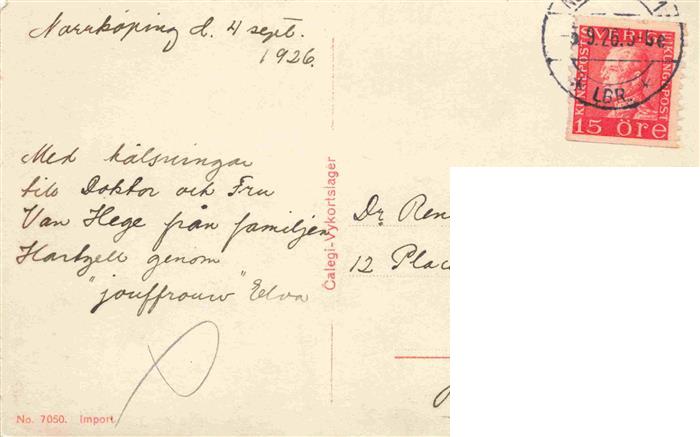 Norrköping d. 4 sept.
1926.
Med hälsningar
till Doktor och Fru
Van Hege från familjen
Hartzell genom
"jouffrouw" Elva
Calegi-Vykortslager
Dr. Ren
12 Plac
No. 7050. Import.
SVERIGE
KUNGL·POST
KUNGL·POST
15 öre
9.26.5
LBR.